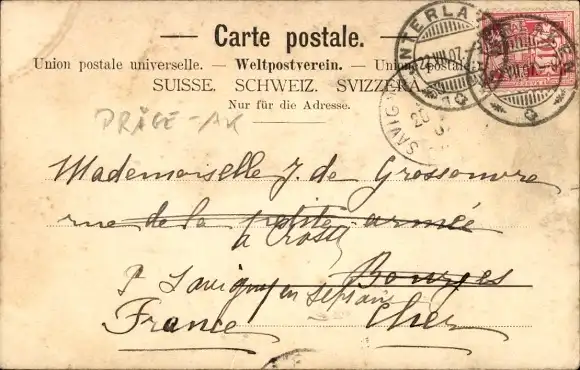 Carte postale.
Union postale universelle. — Weltpostverein. — Unione postale
SUISSE. SCHWEIZ. SVIZZERA.
Nur für die Adresse.
PRÄGE-AK
INTERLAKEN
SAVIGNY
Mademoiselle J. de Grossouvre
rue de la petite armée
a Crosses
p Savigny en Septaine
Bourges
France Cher